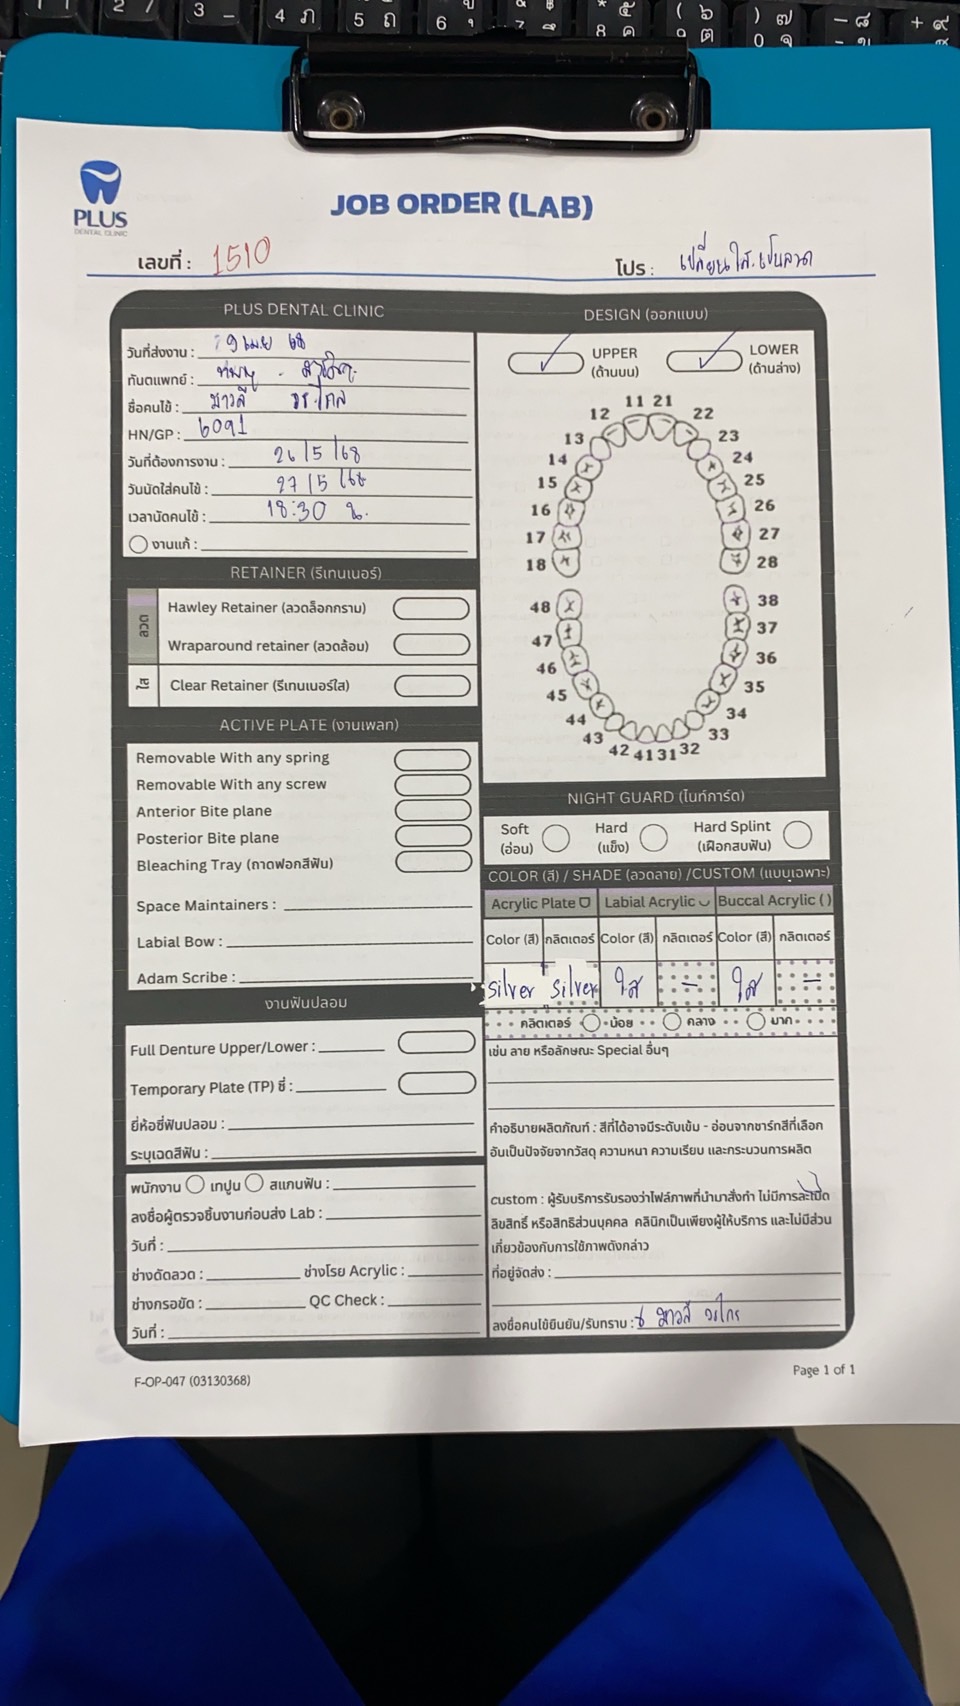 PLUS
DENTAL CLINIC
JOB ORDER (LAB)
เลขที่ : 1510
โปร : เปลี่ยนใส เป็นลวด
PLUS DENTAL CLINIC
วันที่ส่งงาน : 19 เมย 68
ทันตแพทย์ :
ชื่อคนไข้ :
HN/GP : 6091
วันที่ต้องการงาน : 26/5/68
วันนัดใส่คนไข้ : 27/5/68
เวลานัดคนไข้ : 18:30 น.
งานแก้ :
RETAINER (รีเทนเนอร์)
ลวด
Hawley Retainer (ลวดล็อกกราม)
Wraparound retainer (ลวดล้อม)
ใส
Clear Retainer (รีเทนเนอร์ใส)
ACTIVE PLATE (งานเพลท)
Removable With any spring
Removable With any screw
Anterior Bite plane
Posterior Bite plane
Bleaching Tray (ถาดฟอกสีฟัน)
Space Maintainers :
Labial Bow :
Adam Scribe :
งานฟันปลอม
Full Denture Upper/Lower :
Temporary Plate (TP) ซี่ :
ยี่ห้อซี่ฟันปลอม :
ระบุเฉดสีฟัน :
พนักงาน เทปูน สแกนฟัน :
ลงชื่อผู้ตรวจชิ้นงานก่อนส่ง Lab :
วันที่ :
ช่างดัดลวด : ช่างโรย Acrylic :
ช่างกรอขัด : QC Check :
วันที่ :
DESIGN (ออกแบบ)
UPPER
(ด้านบน)
LOWER
(ด้านล่าง)
11 21
12 22
13 23
14 24
15 25
16 26
17 27
18 28
48 38
47 37
46 36
45 35
44 34
43 33
42 41 31 32
NIGHT GUARD (ไนท์การ์ด)
Soft
(อ่อน)
Hard
(แข็ง)
Hard Splint
(เฝือกสบฟัน)
COLOR (สี) / SHADE (ลวดลาย) /CUSTOM (แบบเฉพาะ)
Acrylic Plate Labial Acrylic Buccal Acrylic ( )
Color (สี) กลิตเตอร์ Color (สี) กลิตเตอร์ Color (สี) กลิตเตอร์
silver silver ใส - ใส -
กลิตเตอร์ น้อย กลาง มาก
เช่น ลาย หรือลักษณะ Special อื่นๆ
คำอธิบายผลิตภัณฑ์ : สีที่ได้อาจมีระดับเข้ม - อ่อนจากชาร์ทสีที่เลือก
อันเป็นปัจจัยจากวัสดุ ความหนา ความเรียบ และกระบวนการผลิต
custom : ผู้รับบริการรับรองว่าไฟล์ภาพที่นำมาสั่งทำ ไม่มีการละเมิด
ลิขสิทธิ์ หรือสิทธิส่วนบุคคล คลินิกเป็นเพียงผู้ให้บริการ และไม่มีส่วน
เกี่ยวข้องกับการใช้ภาพดังกล่าว
ที่อยู่จัดส่ง :
ลงชื่อคนไข้ยืนยัน/รับทราบ :
F-OP-047 (03130368)
Page 1 of 1